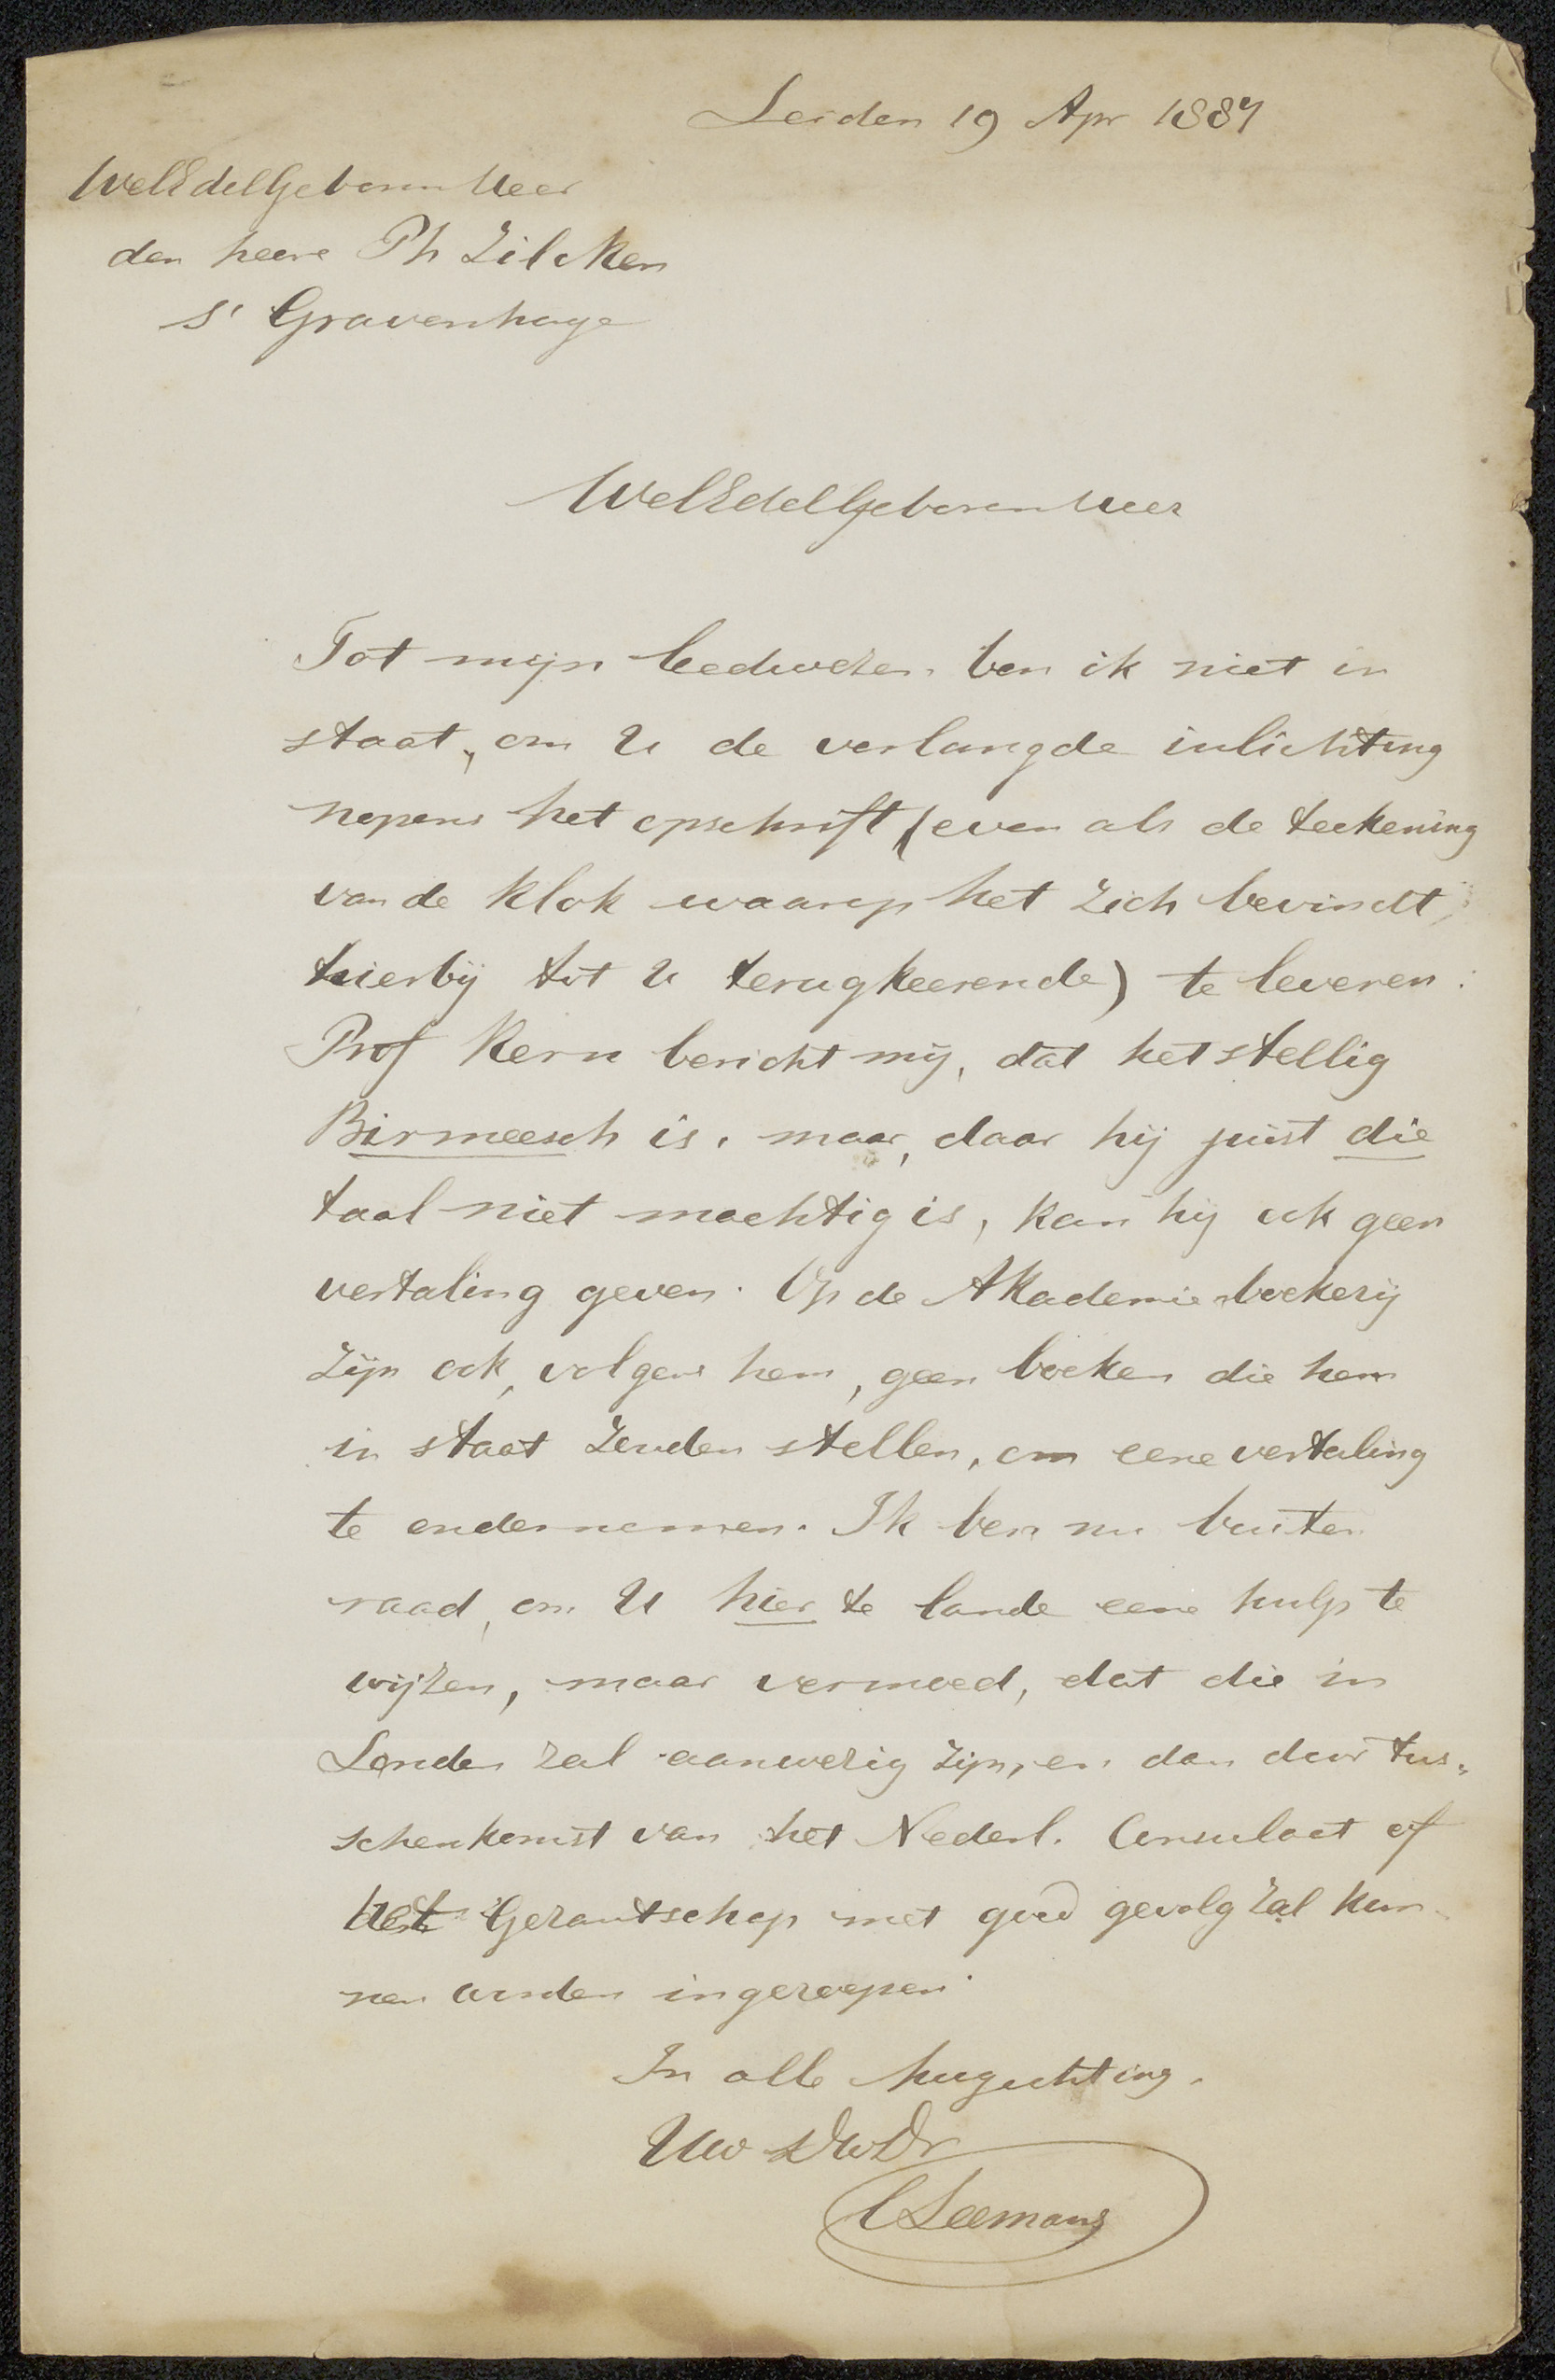 Leiden 19 Apr 1887
WelEdelGeboren Heer
den heere Ph Zilcken
s' Gravenhage
WelEdelGeboren Heer
Tot mijn leedwezen ben ik niet in
staat, om U de verlangde inlichting
nopens het opschrift (even als de teekening
van de klok waarop het zich bevindt,
hierbij tot U terugkeerende) te leveren:
Prof Kern bericht mij, dat het stellig
Birmeesch is, maar, daar hij juist die
taal niet machtig is, kan hij ook geen
vertaling geven. Op de Akademie boekerij
zijn ook, volgens hem, geen boeken die hem
in staat zouden stellen, om eene vertaling
te ondernemen. Ik ben nu buiten
raad, om U hier te lande eene hulp te
wijzen, maar vermoed, dat die in
Londen zal aanwezig zijn, en dan door tus-
schenkomst van het Nederl. Consulaat of
het Gezantschap met goed gevolg zal kun-
nen worden ingeroepen.
In alle hoogachting,
Uw DwDr
C Leemans